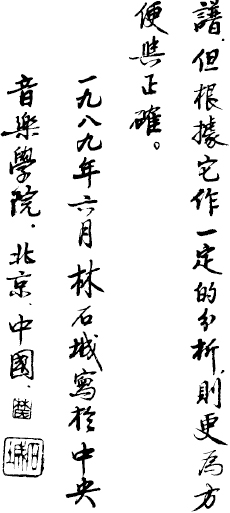 譜，但根據它作一定的分析，則更為方
便與正確。
一九八九年六月林石城寫於中央
音樂學院，北京，中國，
石城